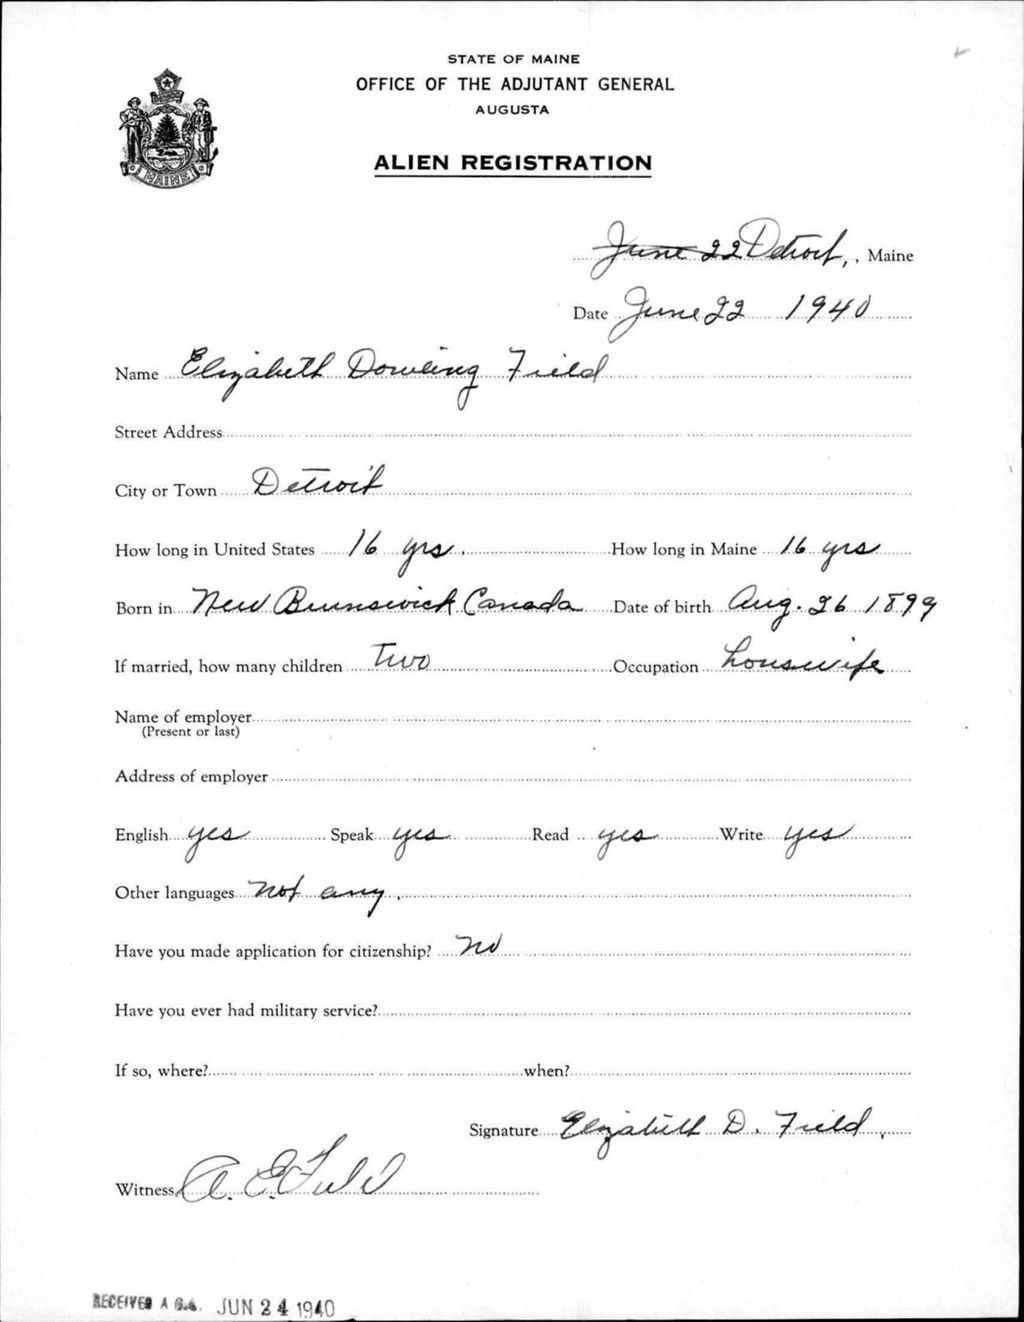 STATE OF MAINE
OFFICE OF THE ADJUTANT GENERAL
AUGUSTA
ALIEN REGISTRATION
MAINE
June 22 Detroit, , Maine
Date June 22 1940
Name Elizabeth Dowling Field
Street Address
City or Town Detroit
How long in United States 16 yrs. How long in Maine 16 yrs
Born in New Brunswick Canada Date of birth Aug. 26 1899
If married, how many children Two Occupation housewife
Name of employer
(Present or last)
Address of employer
English yes Speak yes Read yes Write yes
Other languages not any.
Have you made application for citizenship? no
Have you ever had military service?
If so, where? when?
Signature Elizabeth D. Field,
Witness A. E. Field
RECEIVED A.G.O. JUN 24 1940